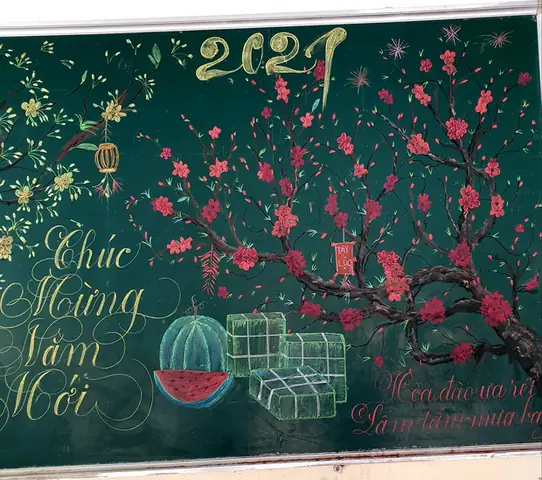 2021
Chúc
Mừng
Năm
Mới
TÀI
LỘC
Hoa đào ưa
Lấm tấm mưa